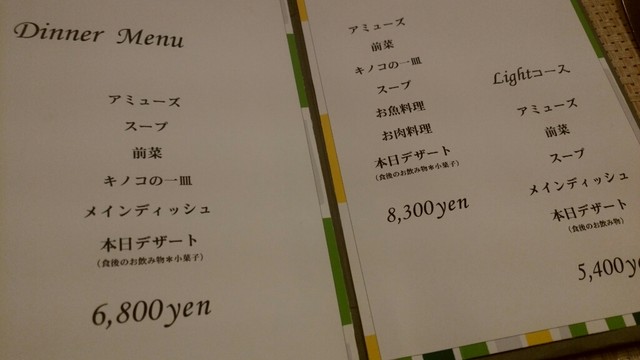 Dinner Menu
アミューズ
スープ
前菜
キノコの一皿
メインディッシュ
本日デザート
(食後のお飲み物*小菓子)
6,800yen
アミューズ
前菜
キノコの一皿
スープ
お魚料理
お肉料理
本日デザート
(食後のお飲み物*小菓子)
8,300yen
Lightコース
アミューズ
前菜
スープ
メインディッシュ
本日デザート
(食後のお飲み物)
5,400ye